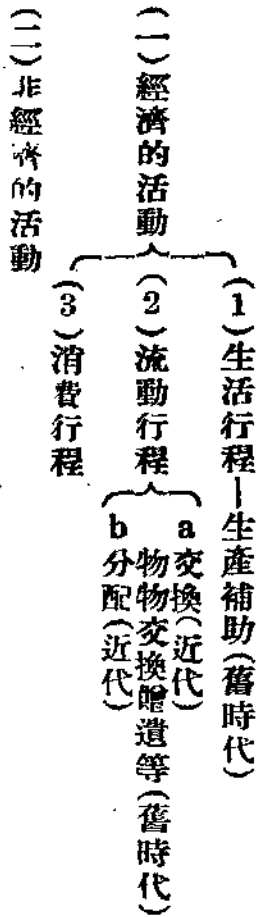 (一)經濟的活動
(1)生活行程—生產補助(舊時代)
(2)流動行程
a交換(近代)
物物交換贈遺等(舊時代)
b分配(近代)
(3)消費行程
(二)非經濟的活動